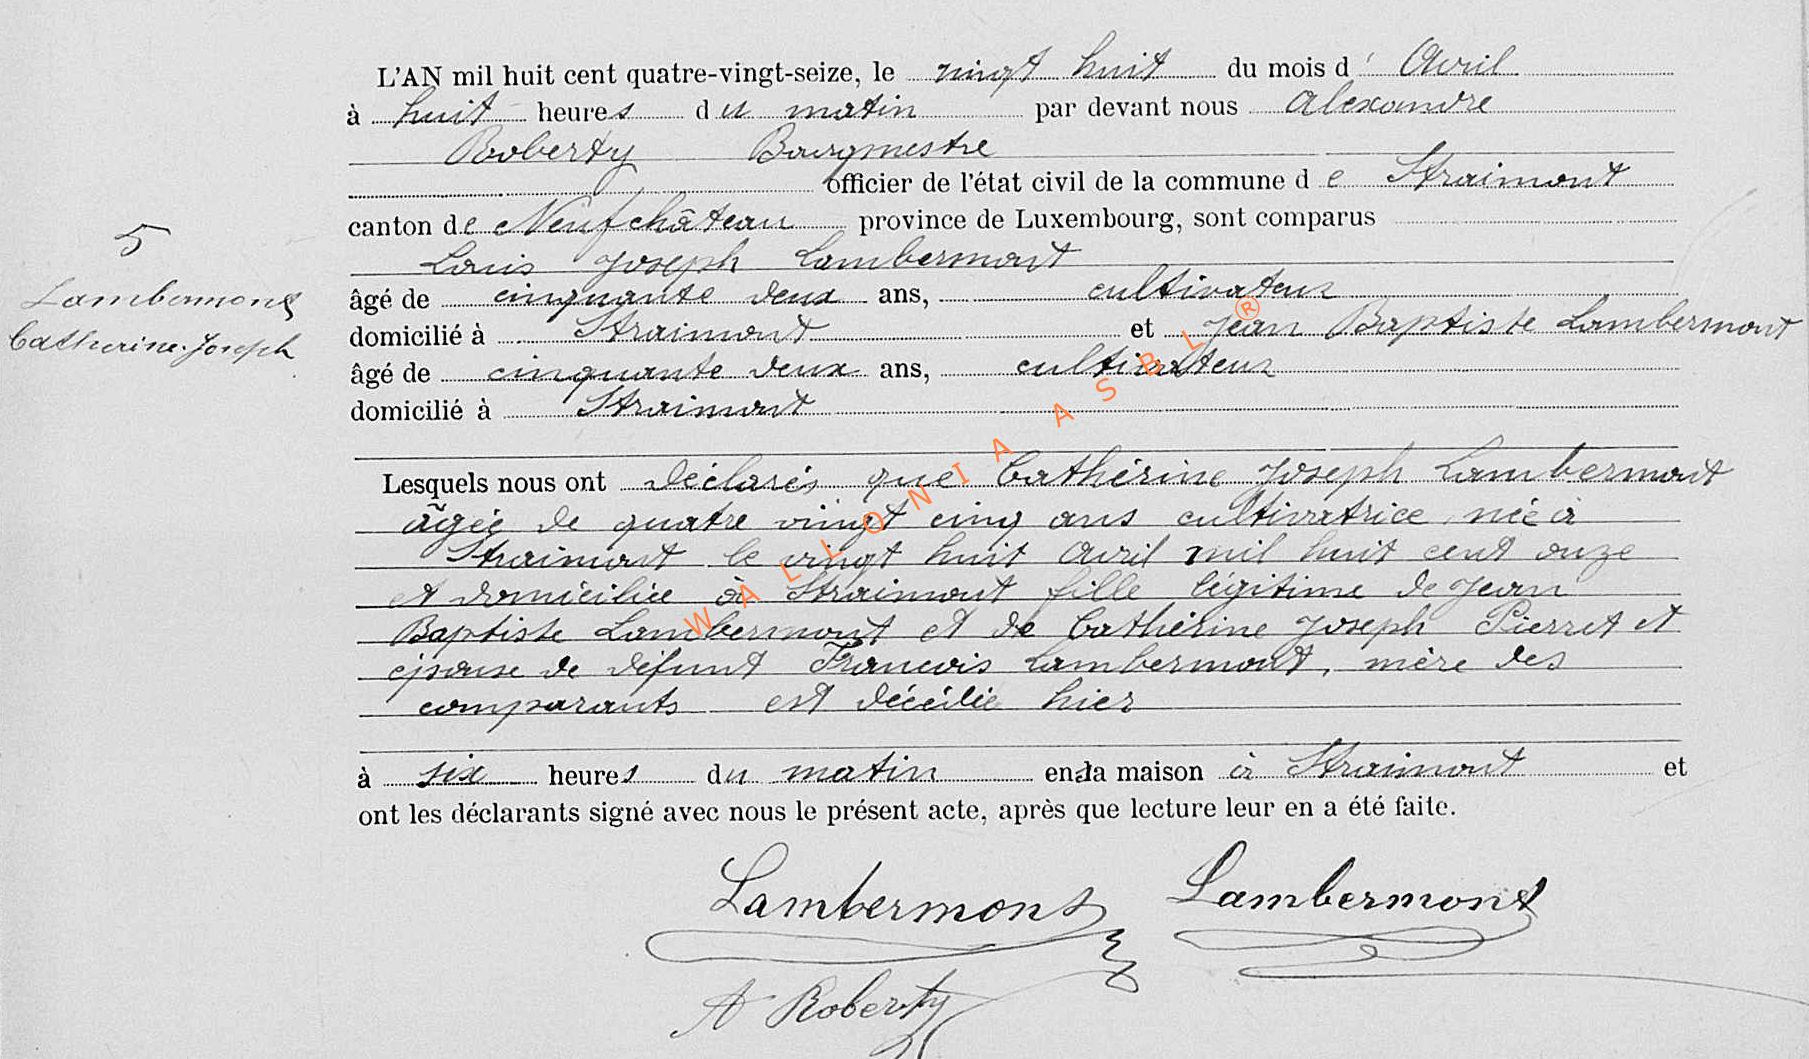 L'AN mil huit cent quatre-vingt-seize, le vingt huit du mois d' Avril
à huit heures du matin par devant nous Alexandre
Roberty Bourgmestre
officier de l'état civil de la commune de Straimont
canton de Neufchâteau province de Luxembourg, sont comparus
Louis Joseph Lambermont
âgé de cinquante deux ans, cultivateur
domicilié à Straimont et Jean Baptiste Lambermont
âgé de cinquante deux ans, cultivateur
domicilié à Straimont
5
Lambermont
Catherine-Joseph
Lesquels nous ont déclarés que Cathérine Joseph Lambermont
âgée de quatre vingt cinq ans cultivatrice, née à
Straimont le vingt huit Avril mil huit cent onze
et domiciliée à Straimont fille légitime de Jean
Baptiste Lambermont et de Cathérine Joseph Pierret et
épouse de défunt Francois Lambermont, mère des
comparants est décédée hier
à six heures du matin en la maison à Straimont et
ont les déclarants signé avec nous le présent acte, après que lecture leur en a été faite.
Lambermont Lambermont
A Roberty
WALLONIA ASBL ®